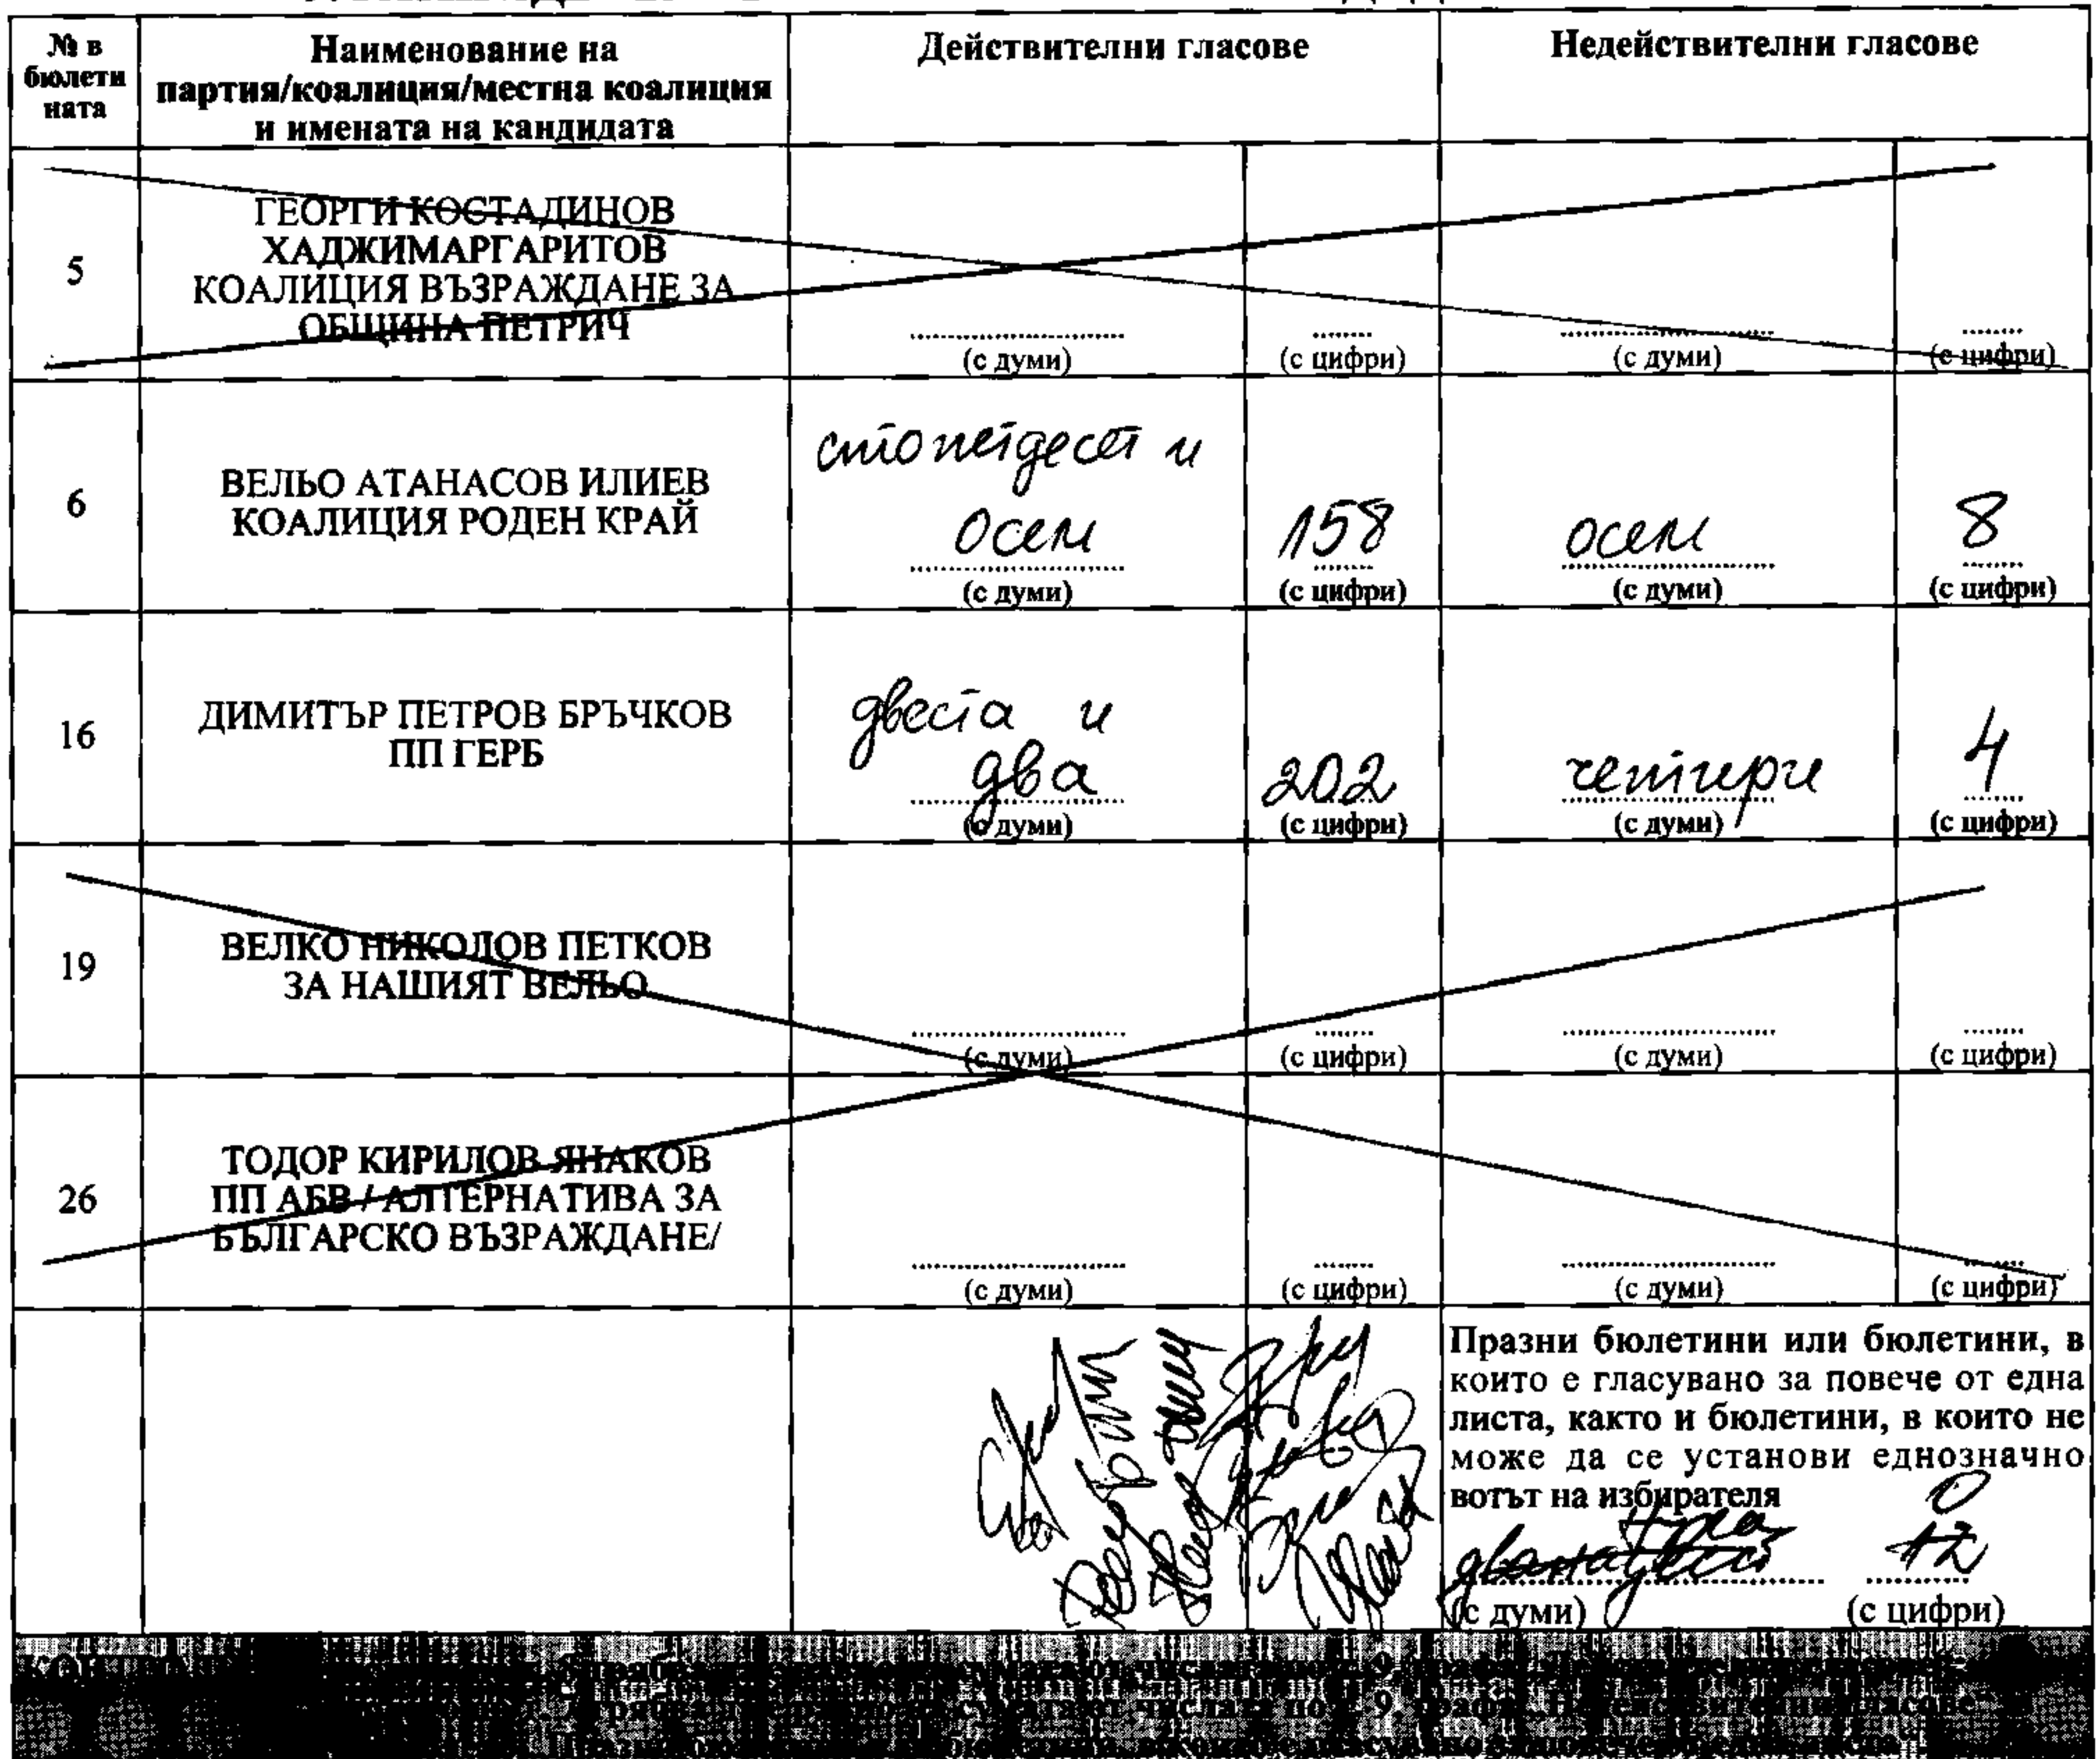 № в бюлети ната
Наименование на
партия/коалиция/местна коалиция
и имената на кандидата
Действителни гласове
Недействителни гласове
5
ГЕОРГИ КОСТАДИНОВ
ХАДЖИМАРГАРИТОВ
КОАЛИЦИЯ ВЪЗРАЖДАНЕ ЗА
ОБЩИНА ПЕТРИЧ
(с думи)
(с цифри)
(с думи)
(с цифри)
6
ВЕЛЬО АТАНАСОВ ИЛИЕВ
КОАЛИЦИЯ РОДЕН КРАЙ
сто петдесет и
осем
(с думи)
158
(с цифри)
осем
(с думи)
8
(с цифри)
16
ДИМИТЪР ПЕТРОВ БРЪЧКОВ
ПП ГЕРБ
двеста и
два
(с думи)
202
(с цифри)
четири
(с думи)
4
(с цифри)
19
ВЕЛКО НИКОЛОВ ПЕТКОВ
ЗА НАШИЯТ ВЕЛЬО
(с думи)
(с цифри)
(с думи)
(с цифри)
26
ТОДОР КИРИЛОВ ЯНАКОВ
ПП АБВ / АЛТЕРНАТИВА ЗА
БЪЛГАРСКО ВЪЗРАЖДАНЕ/
(с думи)
(с цифри)
(с думи)
(с цифри)
Празни бюлетини или бюлетини, в
които е гласувано за повече от една
листа, както и бюлетини, в които не
може да се установи еднозначно
вотът на избирателя
0
дванадесет
12
(с думи)
(с цифри)